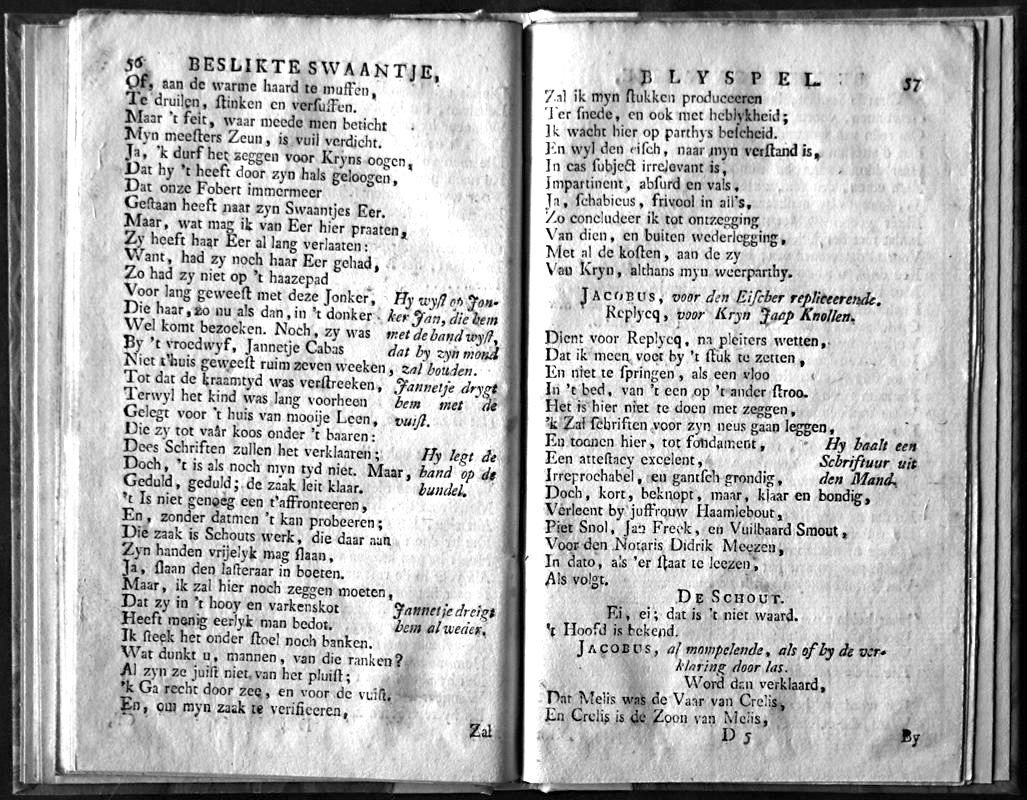 56 BESLIKTE SWAANTJE,
Of, aan de warme haard te muffen,
Te druilen, stinken en versuffen.
Maar 't feit, waar meede men beticht
Myn meesters Zeun, is vuil verdicht.
Ja, 'k durf het zeggen voor Kryns oogen,
Dat hy 't heeft door zyn hals geloogen,
Dat onze Fobert immermeer
Gestaan heeft naar zyn Swaantjes Eer.
Maar, wat mag ik van Eer hier praaten,
Zy heeft haar Eer al lang verlaaten:
Want, had zy noch haar Eer gehad,
Zo had zy niet op 't haazepad
Voor lang geweest met deze Jonker, Hy wyst op Jon-
Die haar, zo nu als dan, in 't donker ker Jan, die hem
Wel komt bezoeken. Noch, zy was met de hand wyst,
By 't vroedwyf, Jannetje Cabas dat hy zyn mond
Niet t'huis geweest ruim zeven weeken, zal houden.
Tot dat de kraamtyd was verstreeken, Jannetje drygt
Terwyl het kind was lang voorheen hem met de
Gelegt voor 't huis van mooije Leen, vuist.
Die zy tot vaâr koos onder 't baaren:
Dees Schriften zullen het verklaaren; Hy legt de
Doch, 't is als noch myn tyd niet. Maar, hand op de
Geduld, geduld; de zaak leit klaar. bundel.
't Is niet genoeg een t'affronteeren,
En, zonder datmen 't kan probeeren;
Die zaak is Schouts werk, die daar aan
Zyn handen vrijelyk mag slaan,
Ja, slaan den lasteraar in boeten.
Maar, ik zal hier noch zeggen moeten,
Dat zy in 't hooy en varkenskot Jannetje dreigt
Heeft menig eerlyk man bedot. hem al weder.
Ik steek het onder stoel noch banken.
Wat dunkt u, mannen, van die ranken?
Al zyn ze juist niet van het pluist;
'k Ga recht door zee, en voor de vuist.
En, om myn zaak te verifieeren,
Zal
BLYSPEL. 57
Zal ik myn stukken produceeren
Ter snede, en ook met heblykheid;
Ik wacht hier op parthys bescheid.
En wyl den eisch, naar myn verstand is,
In cas subject irrelevant is,
Impartinent, absurd en vals,
Ja, schabieus, frivool in all's,
Zo concludeer ik tot ontzegging
Van dien, en buiten wederlegging,
Met al de kosten, aan de zy
Van Kryn, althans myn weerparthy.
JACOBUS, voor den Eischer repliceerende.
Replycq, voor Kryn Jaap Knollen.
Dient voor Replycq, na pleiters wetten,
Dat ik meen voet by 't stuk te zetten,
En niet te springen, als een vloo
In 't bed, van 't een op 't ander stroo.
Het is hier niet te doen met zeggen,
'k Zal schriften voor zyn neus gaan leggen,
En toonen hier, tot fondament, Hy haalt een
Een attestacy excelent, Schriftuur uit
Irreprochabel, en gantsch grondig, den Mand.
Doch, kort, beknopt, maar, klaar en bondig,
Verleent by juffrouw Haamlebout,
Piet Snol, Jan Freek, en Vuilbaard Smout,
Voor den Notaris Didrik Meezen,
In dato, als 'er staat te leezen,
Als volgt.
DE SCHOUT.
Ei, ei; dat is 't niet waard.
't Hoofd is bekend.
JACOBUS, al mompelende, als of hy de ver-
klaring door las.
Word dan verklaard,
Dat Melis was de Vaar van Crelis,
En Crelis is de Zoon van Melis,
D 5 By